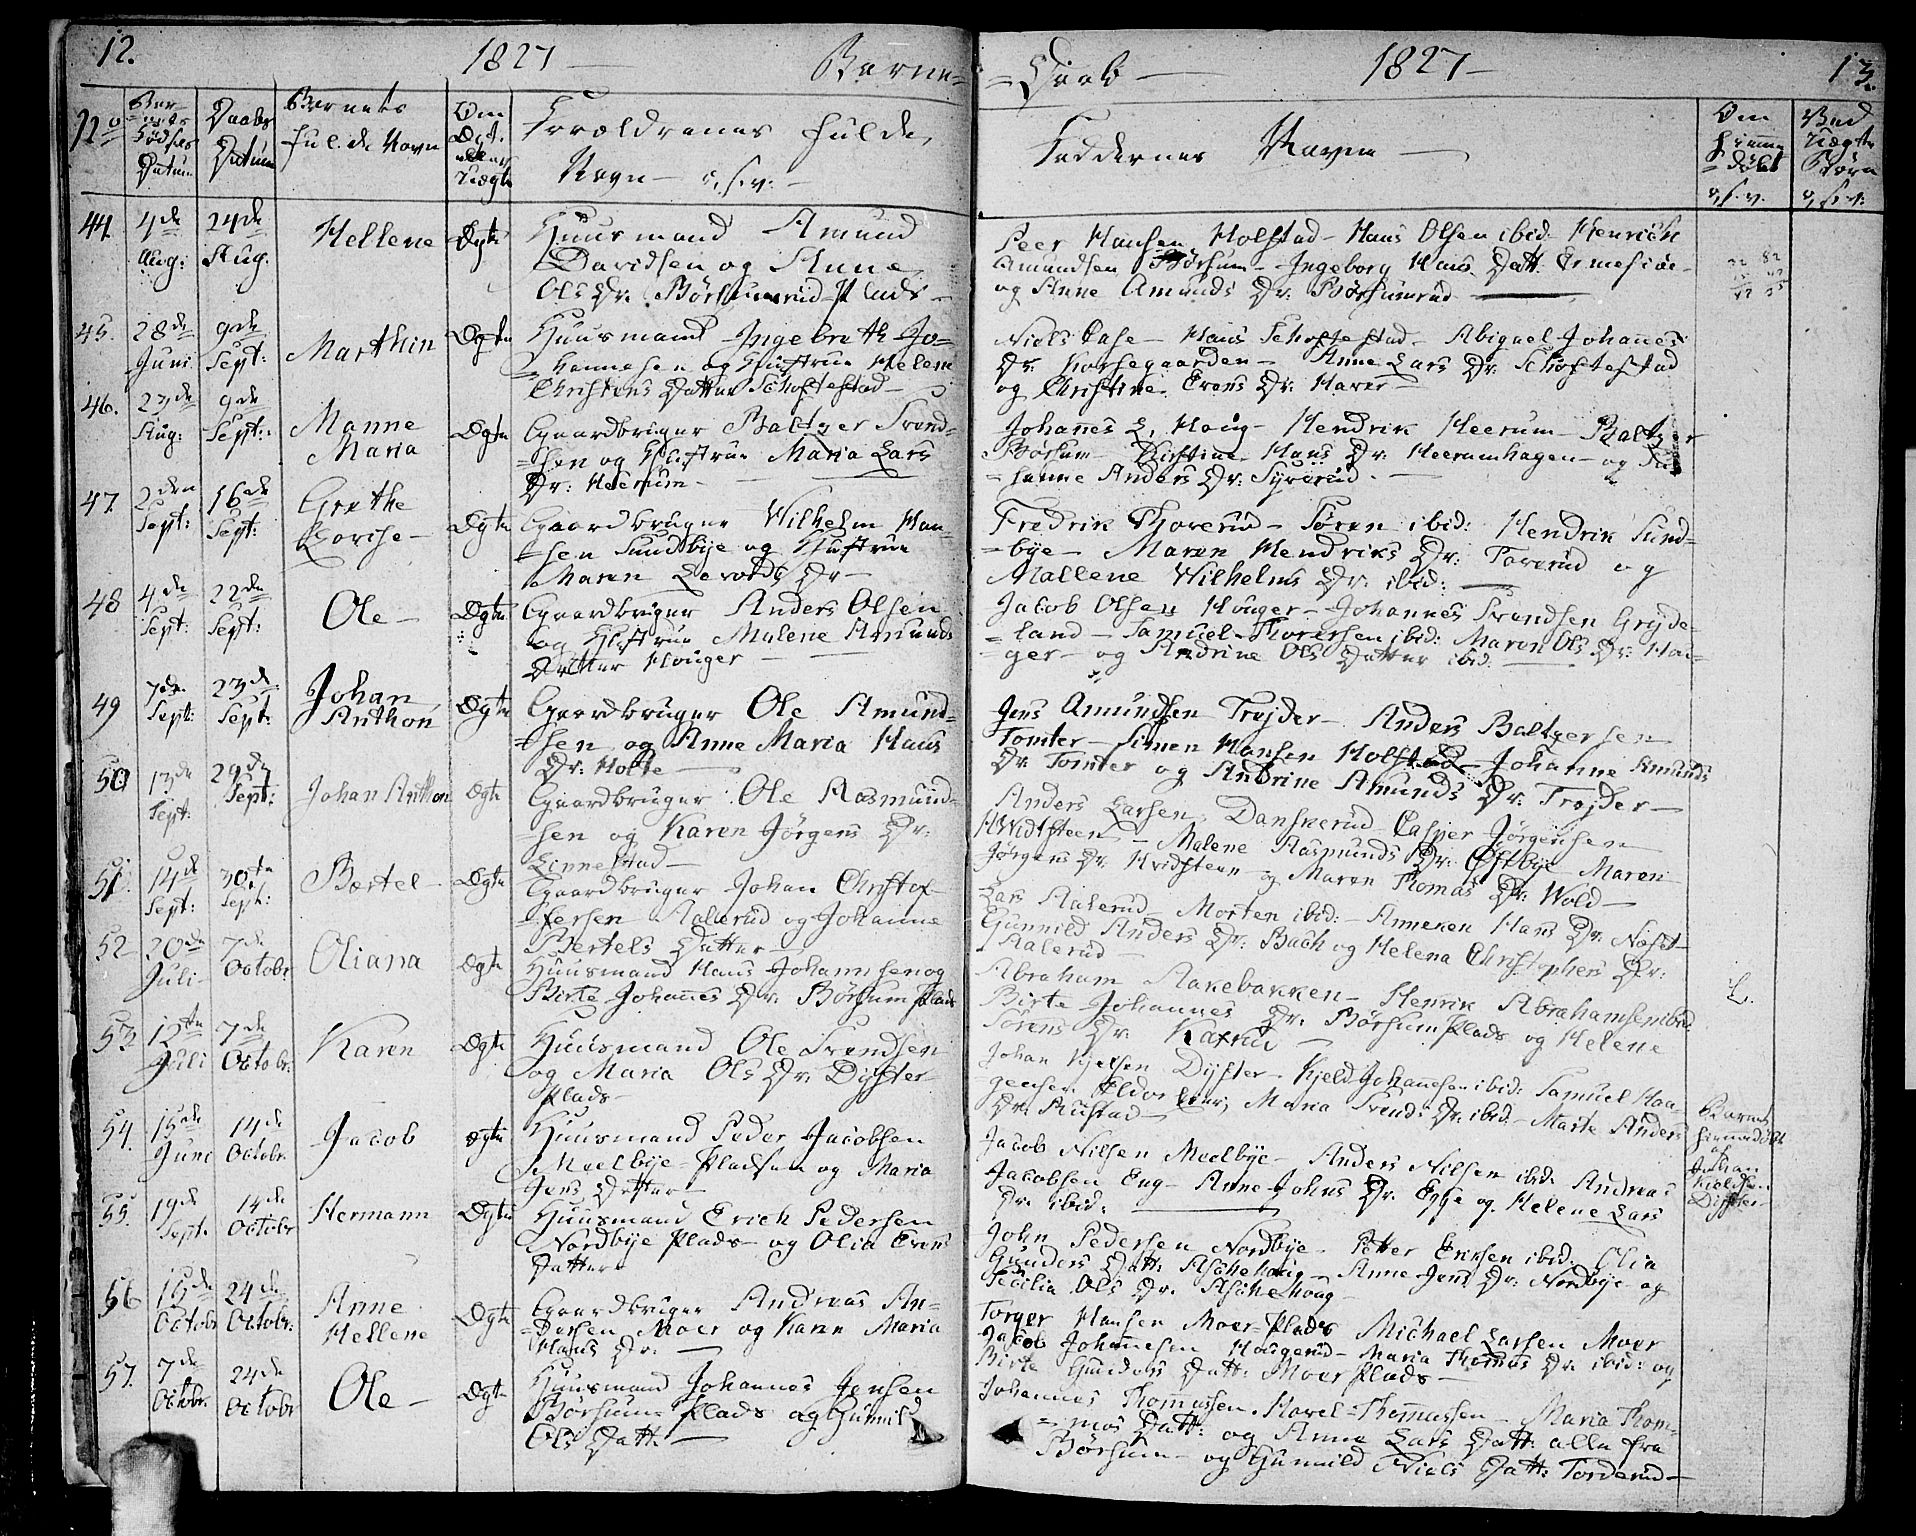 12. 1827 — Barne-
No Barnets Fødsels Datum Daabs Datum Barnets fulde Navn Om Ægte eller Uægte Forældrenes fulde
Navn o.s.v.
44. 4de Aug: 24de Aug. Hellene Ægte Huusmand Amund
Davidsen og Anne
Ols Dr. Børsumrud Plads
45. 28de Juni 9de Sept: Marthin Ægte Huusmand Ingebreth Jo-
hannesen og Hustrue Helene
Christens Datter Schoftestad
46. 23de Aug: 9de Sept: Manne Maria Ægte Gaardbruger Baltzer Svend-
sen og Hustrue Maria Lars
Dr: Heerum
47. 2den Sept: 16de Sept: Grethe Lovise Ægte Gaardbruger Wilhelm Han-
sen Sundbye og Hustrue
Maren Dr
48 4de Sept: 22de Sept: Ole Ægte Gaardbruger Anders Olsen
og Hustrue Malene Amunds
Datter Houger
49 7de Sept: 23de Sept: Johan Anthon Ægte Gaardbruger Ole Amund-
sen og Anne Maria Hans
Dr: Holte
50 13de Sept: 29de Sept: Johan Anthon Ægte Gaardbruger Ole Rasmund-
sen og Karen Jørgens Dr:
Linnestad
51. 14de Sept: 30te Sept: Bertel Ægte Gaardbruger Johan Christof-
fersen Aalerud og Johanne
Bertels Datter
52 20de Juli 7de Octobr Oliana Ægte Huusmand Hans Johannsen og
Birte Johannes Dr. Børsum Plads
53. 12te Juli 7de Octobr. Karen Ægte Huusmand Ole Svendsen
og Maria Ols Dr. Dyster
Plads
54. 15de Juni 14de Octobr. Jacob Ægte Huusmand Peder Jacobsen
Meelbye-Pladsen og Maria
Jens Datter
55. 19de Sept. 14de Octobr Hermann Ægte Huusmand Erich Pedersen
Nordbye Plads og Olia Evens
Datter
56 15de Octobr 24de Octobr: Anne Hellene Ægte Gaardbruger Andreas An-
dersen Moer og Karen Maria
Hans Dr:
57. 7de Octobr. 24de Octobr Ole Ægte Huusmand Johannes Jensen
Børsum Plads og Gunild
Ols Datt:
-Daab — 1827 — 13.
Faddernes Navne Om hiemmedøbt o.s.v. Ved Uægte Børn o.s.v.
Peer Hansen Holstad Hans Olsen ibid: Henrich
Amundsen Børsum Ingeborg Hans Datt: Ermesiøe
og Anne Amunds Dr. Børsumrud
Niels Hans Schoftestad Abigael Johannes
Dr. Korsegaarden Anne Lars Dr. Schoftestad
og Christine Evens Dr: Harer
Johannes L. Houg Hendrik Heerum Baltzer
Børsum Kirstine Hans Dr. Heerumhagen og
hanne Anders Dr:
Fredrik Thorerud Søren ibid: Hendrik Sund-
bye Maren Hendriks Dr: Torerud og
Mallene Wilhelms Dr: ibid:
Jacob Olsen Houger Johannes Svendsen Grøde-
land Samuel Thorersen ibid: Maren Ols Dr: Hou-
ger og Andrine Ols Datter ibid:
Jens Amundsen Trøjder Anders Baltzersen
Tomter Simen Hansen Holstad Johanne Amunds
Dr. Tomter og Andrine Amunds Dr. Trøjder
Anders Larsen Danskerud Casper Jørgensen
Hvidsteen Malene Rasmunds Dr: Østbye Maren
Jørgens Dr. Hvidsteen og Maren Thomas Dr: Wold
Lars Aalerud Morten ibid: Anneken Hans Dr. Næset
Gunnild Anders Dr: Bach og Helena Christophers Dr:
Aalerud
Abraham Aakebakken Henrik Abrahamsen ibid:
Birte Johannes Dr. Børsum Plads og Helene
Sørens Dr.
Johan Kjelsen Dyster Kjeld Johannesen ibid: Samuel Haa-
gensen Maria Svends Dr: ibid: Marte Anders
Dr. Rustad
Jacob Nilsen Meelbye Anders Nilsen ibid: Andreas
Jacobsen Eng Anne Johns Dr. Egge og Helene Lars
Dr: ibid:
Barnet hiemmedøbt af Johan Kieldsen Dyster
John Pedersen Nordbye Petter Ericksen ibid: Olia
Gunders Datt: Aschehoug Anne Jens Dr: Nordbye og
Cecilia Ols Dr. Aschehoug
Torger Hansen Moer-Plads Michael Larsen Moer
Jacob Johannesen Hougerud Maria Thomas Dr. ibid: og
Birte Gunders Datt: Moer Plads
Johannes Thommassen, Havel Thommassen Maria Thom-
mas Datt: og Anne Lars Datt: alle fra
Børsum og Gunild Niels Datt: Torderud